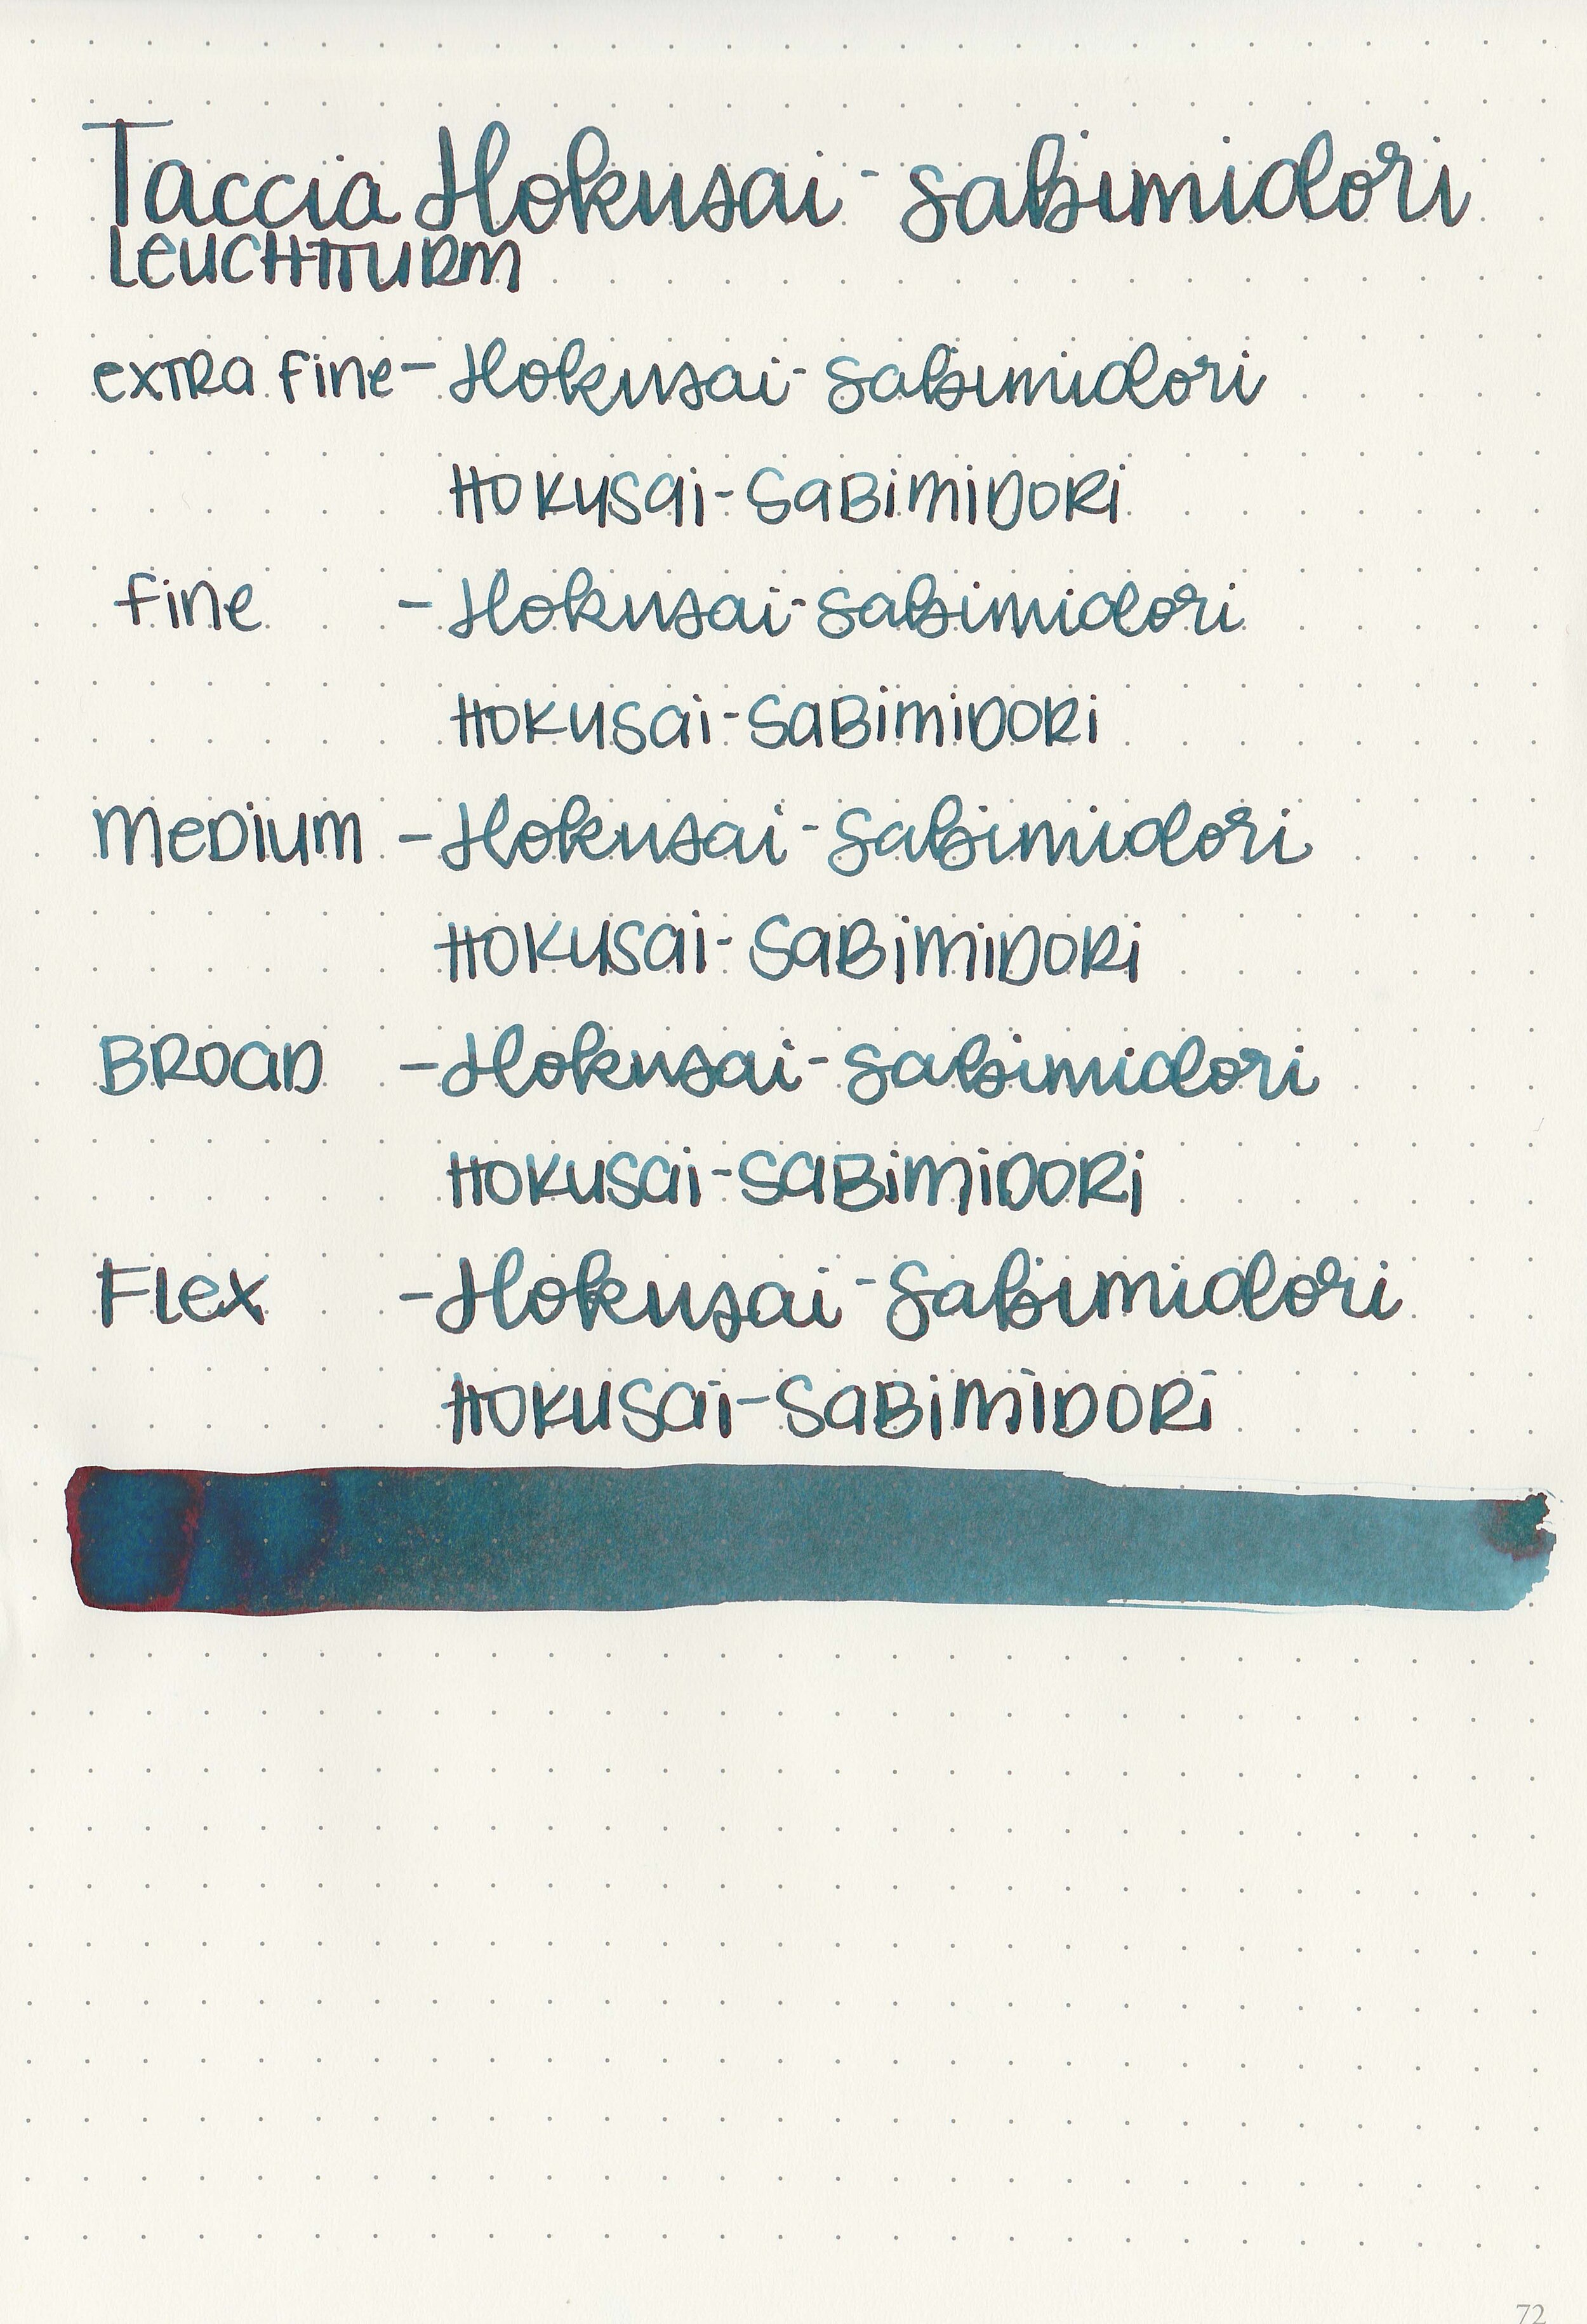 Taccia Hokusai - Sabimidori
LEUCHTTURM
extra fine - Hokusai - Sabimidori
Hokusai - Sabimidori
fine - Hokusai - Sabimidori
Hokusai - Sabimidori
Medium - Hokusai - Sabimidori
Hokusai - Sabimidori
Broad - Hokusai - Sabimidori
Hokusai - Sabimidori
Flex - Hokusai - Sabimidori
Hokusai - Sabimidori
72